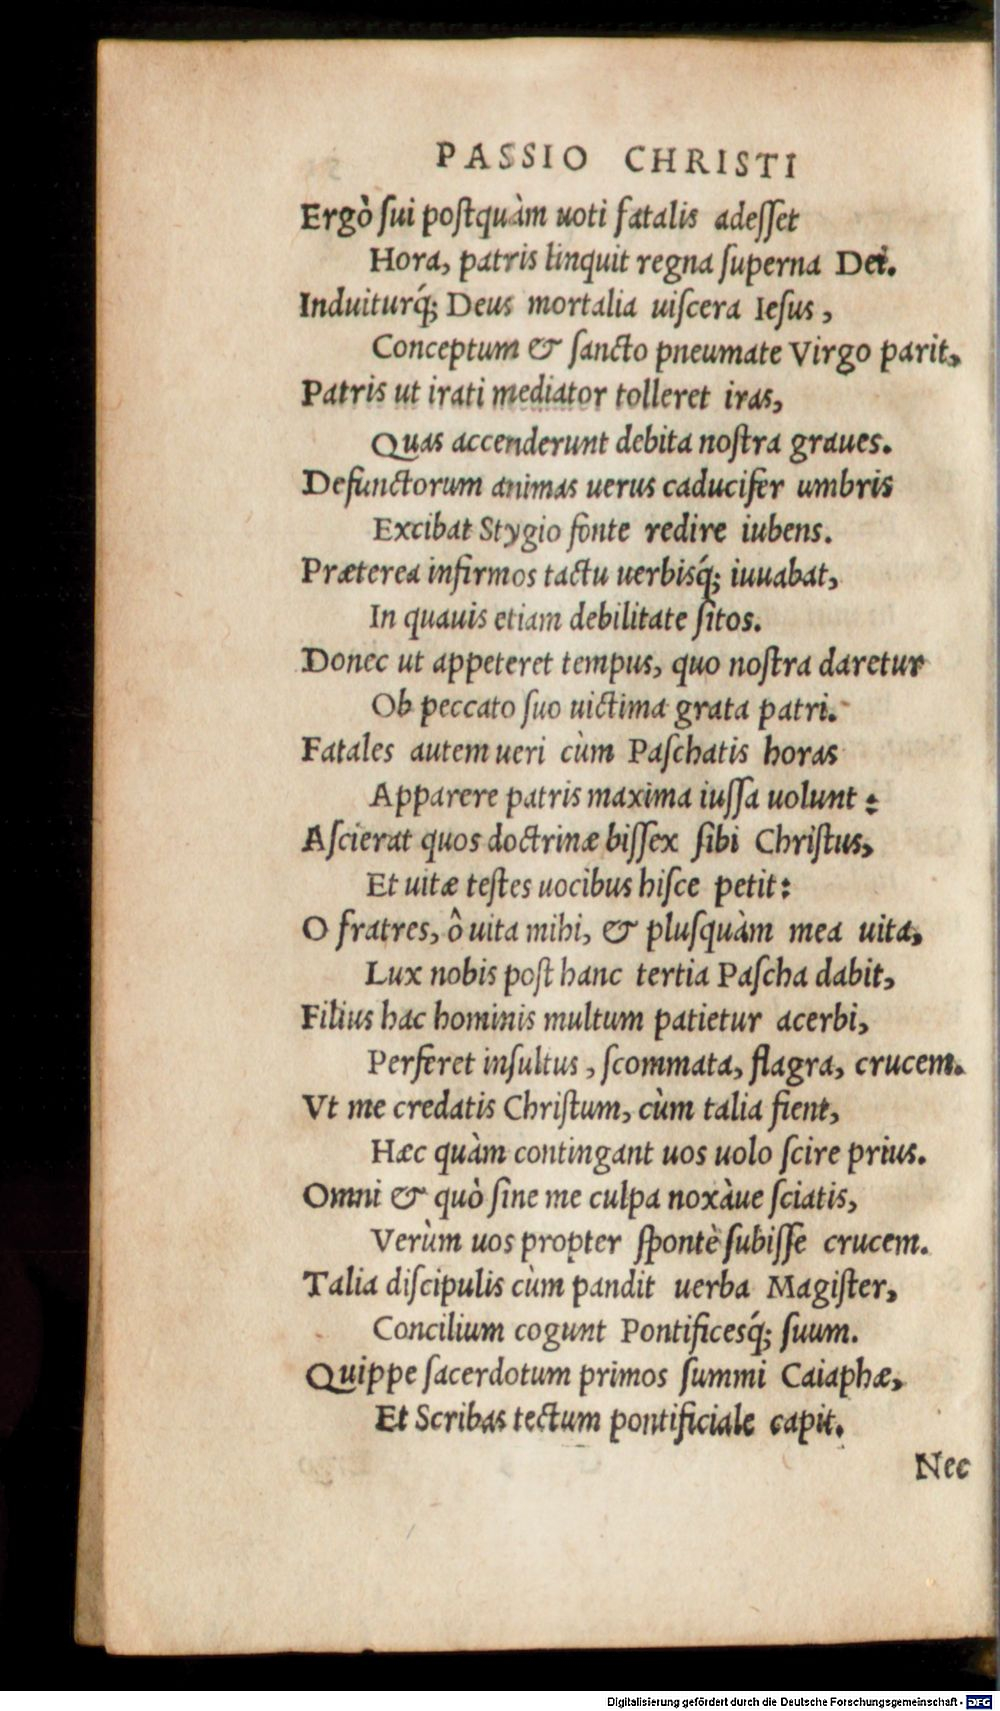 PASSIO CHRISTI
Ergò ſui poſtquàm uoti fatalis adeſſet
Hora, patris linquit regna ſuperna Dei.
Induiturq́; Deus mortalia uiſcera Ieſus,
Conceptum & ſancto pneumate Virgo parit,
Patris ut irati mediator tolleret iras,
Quas accenderunt debita noſtra graues.
Defunctorum animas uerus caducifer umbris
Excibat Stygio fonte redire iubens.
Præterea infirmos tactu uerbisq́; iuuabat,
In quauis etiam debilitate ſitos.
Donec ut appeteret tempus, quo noſtra daretur
Ob peccato ſuo uictima grata patri.
Fatales autem ueri cùm Paſchatis horas
Apparere patris maxima iuſſa uolunt:
Aſcierat quos doctrinæ biſſex ſibi Chriſtus,
Et uitæ teſtes uocibus hiſce petit:
O fratres, ô uita mihi, & pluſquàm mea uita,
Lux nobis poſt hanc tertia Paſcha dabit,
Filius hac hominis multum patietur acerbi,
Perferet inſultus, ſcommata, flagra, crucem.
Vt me credatis Chriſtum, cùm talia fient,
Hæc quàm contingant uos uolo ſcire prius.
Omni & quò ſine me culpa noxàue ſciatis,
Verùm uos propter ſpontè ſubiſſe crucem.
Talia diſcipulis cùm pandit uerba Magiſter,
Concilium cogunt Pontificesq́; ſuum.
Quippe ſacerdotum primos ſummi Caiaphæ,
Et Scribas tectum pontificiale capit.
Nec
Digitalisierung gefördert durch die Deutsche Forschungsgemeinschaft - DFG